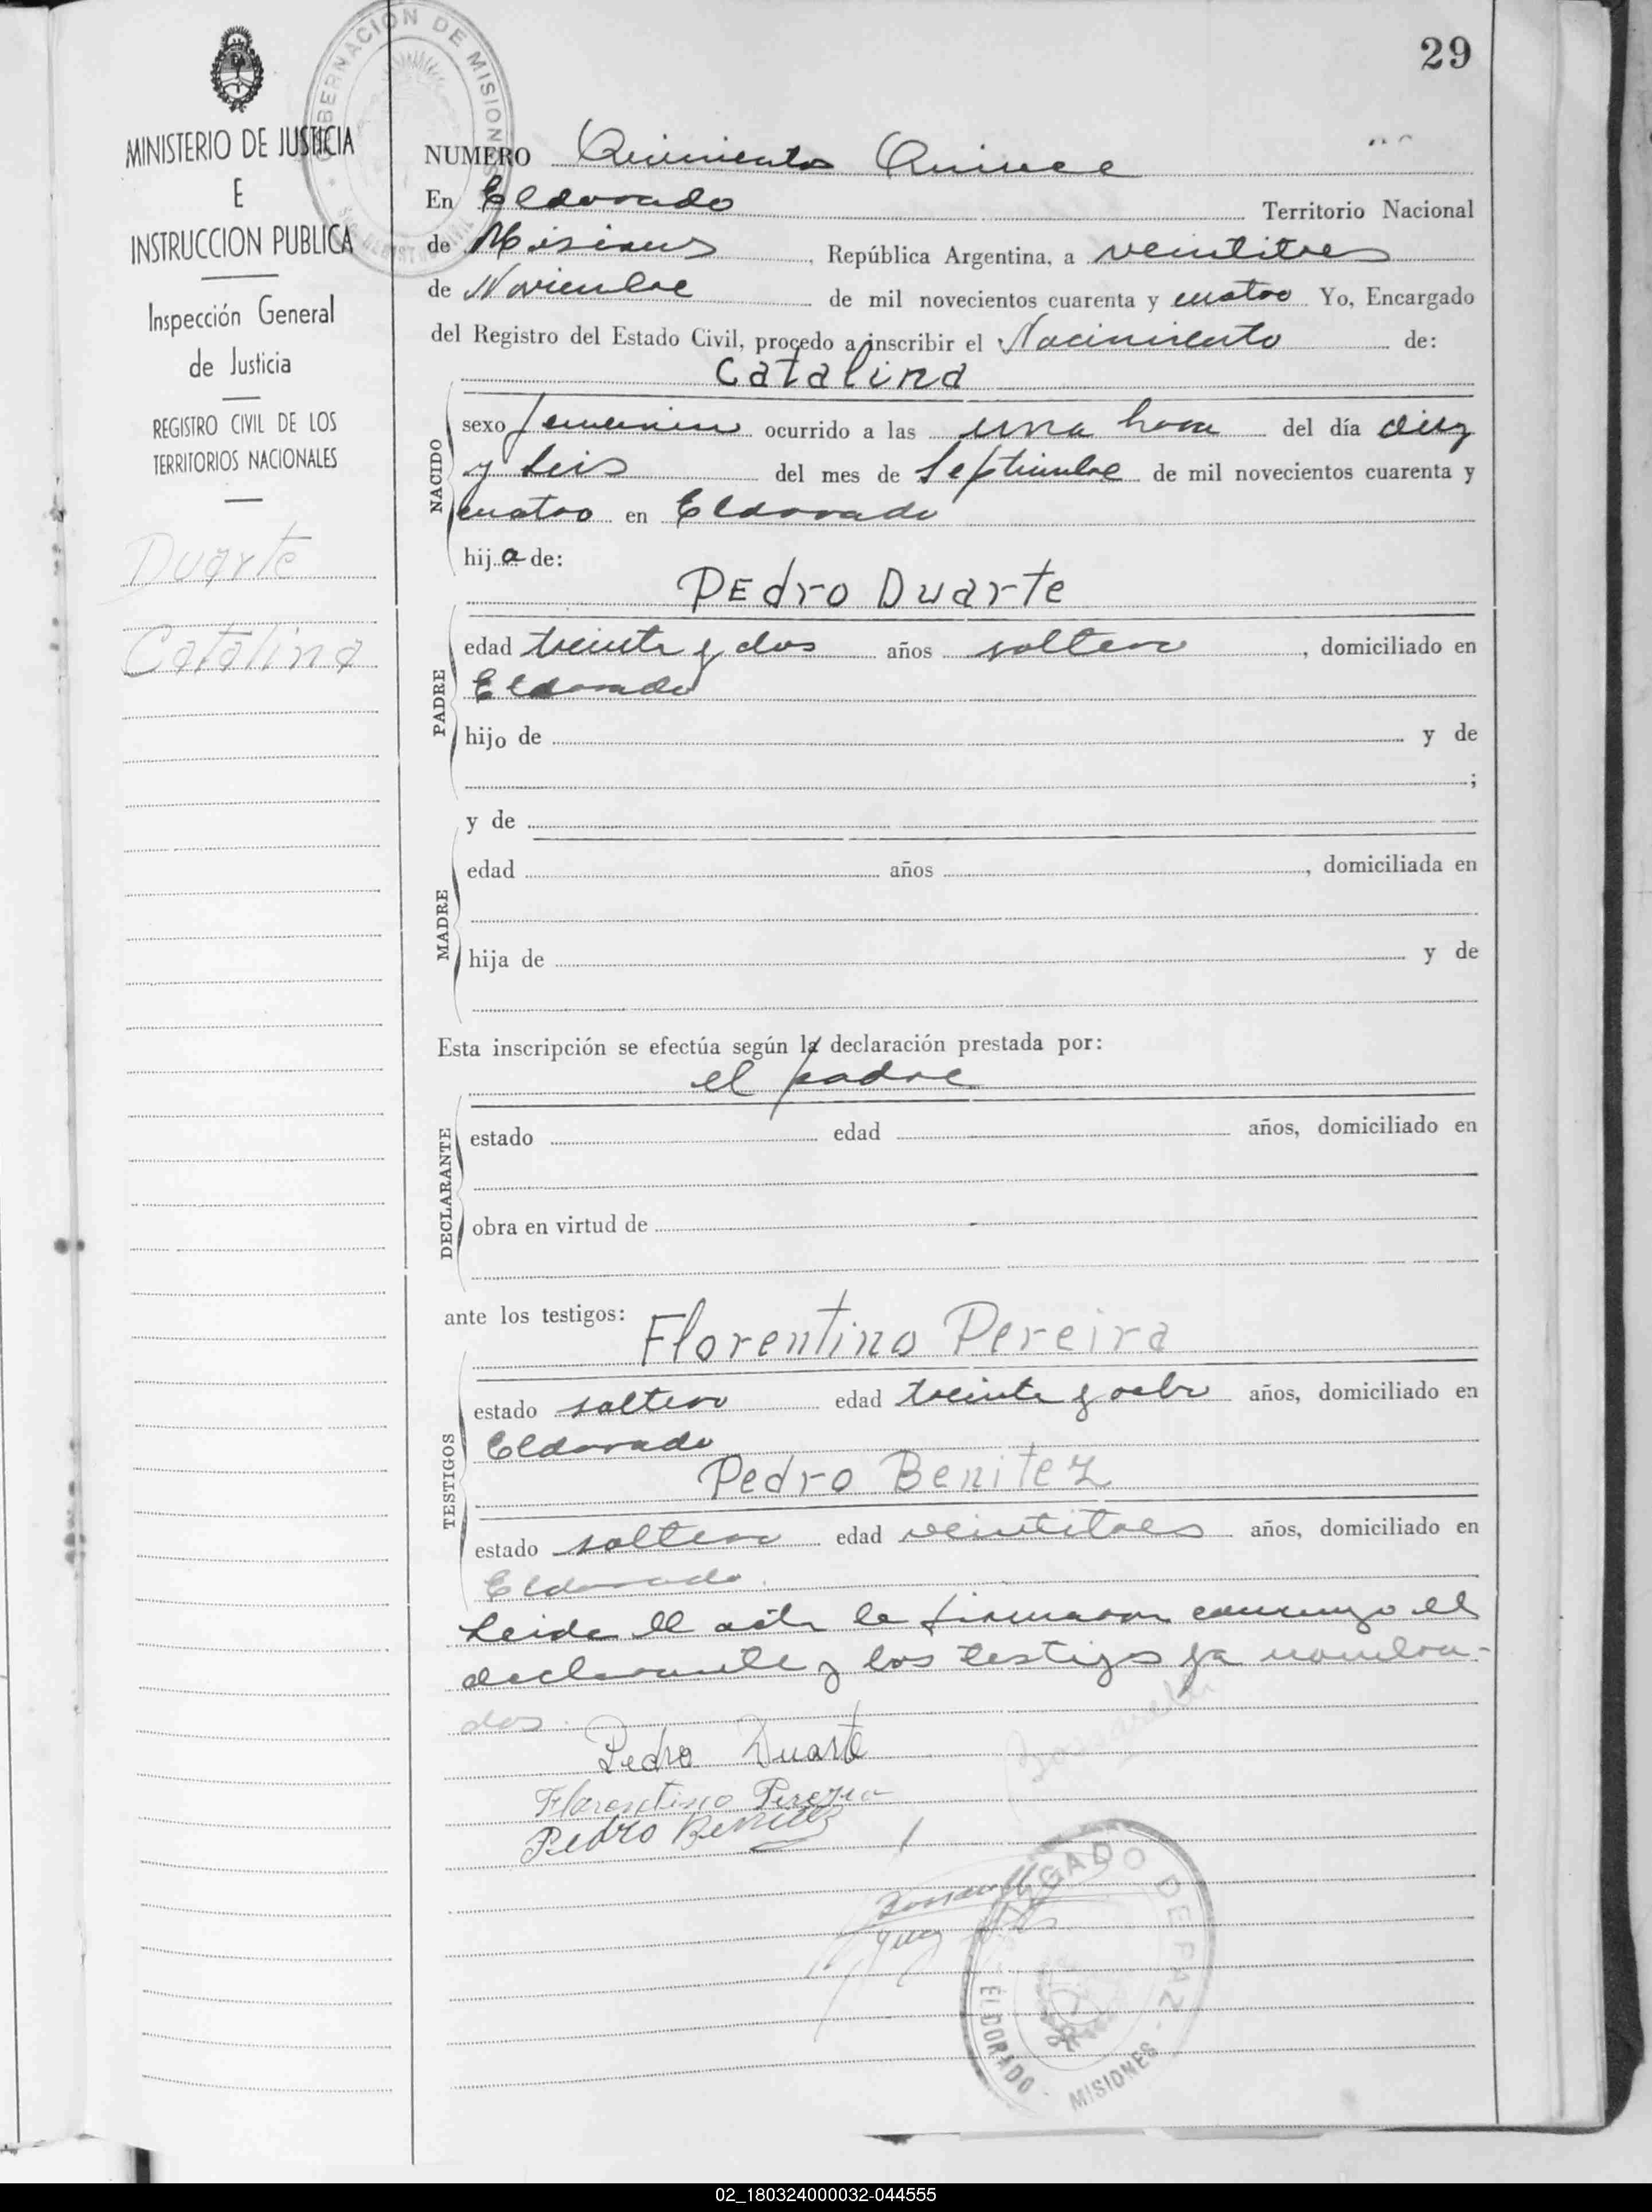 29
GOBERNACION DE MISIONES
MINISTERIO DE JUSTICIA
E
INSTRUCCION PUBLICA
Inspección General
de Justicia
REGISTRO CIVIL DE LOS
TERRITORIOS NACIONALES
Duarte
Catalina
NUMERO Quinientos Quince
En Eldorado Territorio Nacional
de Misiones, República Argentina, a veintitres
de Noviembre de mil novecientos cuarenta y cuatro Yo, Encargado
del Registro del Estado Civil, procedo a inscribir el Nacimiento de:
Catalina
NACIDO
sexo femenino ocurrido a las una hora del día diez
y seis del mes de Septiembre de mil novecientos cuarenta y
cuatro en Eldorado
hija de:
Pedro Duarte
PADRE
edad treinta y dos años soltero, domiciliado en
Eldorado
hijo de y de
;
y de
MADRE
edad años , domiciliada en
hija de y de
Esta inscripción se efectúa según la declaración prestada por:
el padre
DECLARANTE
estado edad años, domiciliado en
obra en virtud de
ante los testigos:
Florentino Pereira
TESTIGOS
estado soltero edad treinta y ocho años, domiciliado en
Eldorado
Pedro Benitez
estado soltero edad veintitres años, domiciliado en
Eldorado.
Leida el acta la firmaron conmigo el
declarante y los testigos ya nombra-
dos.
Pedro Duarte
Florentino Pereira
Pedro Benitez
Juez
JUZGADO DE PAZ
ELDORADO - MISIONES
02_180324000032-044555